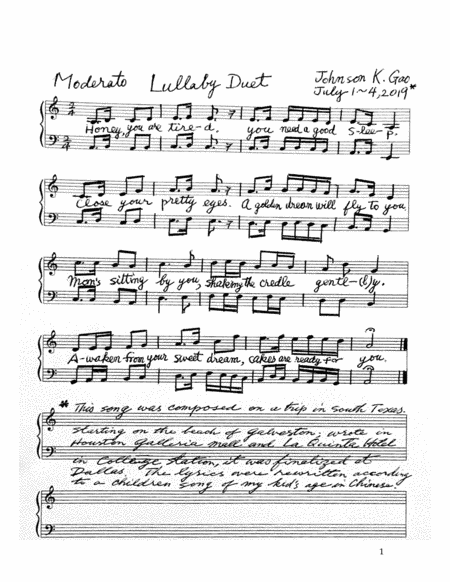 Moderato Lullaby Duet Johnson K. Gao
July 1~4, 2019*
Honey, you are tire-d. you need a good s-lee-p.
Close your pretty eyes. A golden dream will fly to you.
Mom's sitting by you, shaking the credle gent-le-(l)y.
A-waken from your sweet dream, cakes are ready for you.
* This song was composed on a trip in South Texas.
starting on the beach of Galveston, wrote in
Houston Galleria mall and La Quinta Hotel
in College Station, it was finalized at
Dallas. The lyrics were rewritten according
to a children song of my kid's age in Chinese.
1